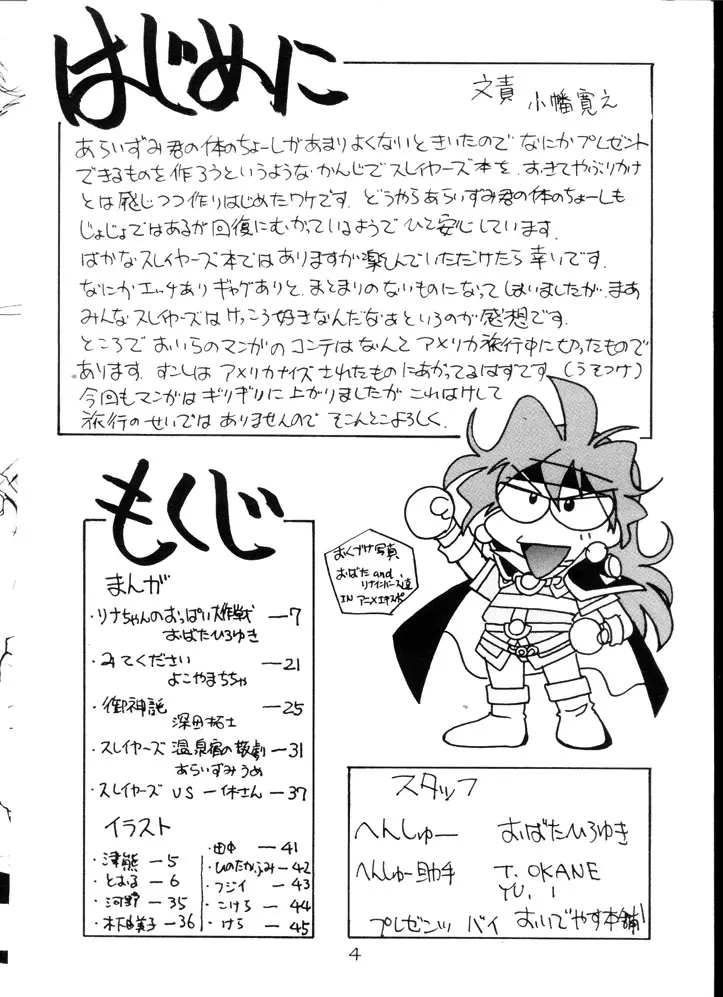 はじめに
文責 小幡寛之
あらいずみ君の体のちょーしがあまりよくないときいたので なにかプレゼント
できるものを作ろうというような かんじでスレイヤーズ本を、おきてやぶりかけ
とは感じつつ作りはじめたワケです. どうやらあらいずみ君の体のちょーしも
じょじょではあるが回復にむかっているようで ひと安心しています.
ばかなスレイヤーズ本ではありますが楽しんでいただけたら幸いです.
なにかエッチありギャグありと、まとまりのないものになってしまいましたが、まあ
みんなスレイヤーズはけっこう好きなんだなあというのが感想です.
ところでおいらのマンガのコンテはなんとアメリカ旅行中に切ったもので
あります. すこしはアメリカナイズされたものにあがってるはずです (うそつけ)
今回もマンガはギリギリに上がりましたが これはけして
旅行のせいではありませんので そこんとこよろしく.
もくじ
まんが
・リナちゃんのおっぱい大作戦 ー7
おばたひろゆき
・みてください ー21
よこやまちちゃ
・御神託 ー25
深田拓士
・スレイヤーズ 温泉宿の惨劇 ー31
あらいずみうめ
・スレイヤーズ VS 一休さん ー37
イラスト
・津熊 ー5
・とおる ー6
・河野 ー35
ー36
・田中 ー41
・ひのたかふみ ー42
・フジイ ー43
・こけら ー44
・けら ー45
おくづけ写真
おばた and
リナインバース達
IN アニメエキスポ
スタッフ
へんしゅー おばたひろゆき
へんしゅー助手 T. OKANE
プレゼンツ バイ おいでやす本舗
4